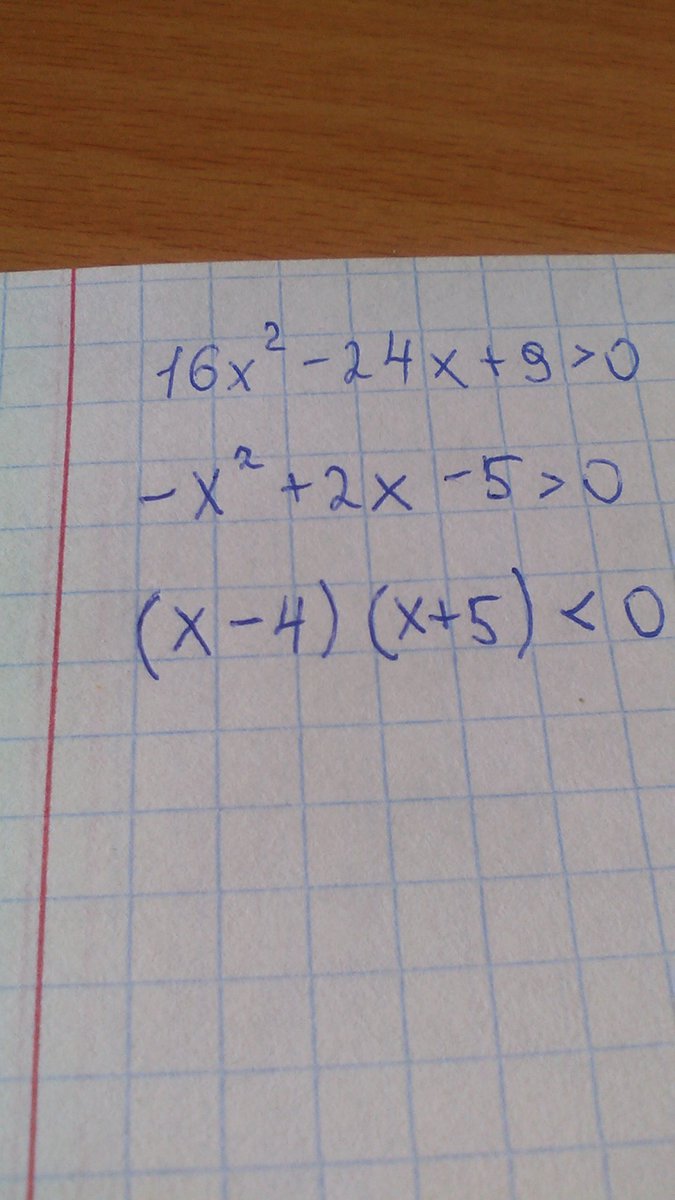 16x² - 24x + 9 > 0
-x² + 2x - 5 > 0
(x - 4) (x + 5) < 0